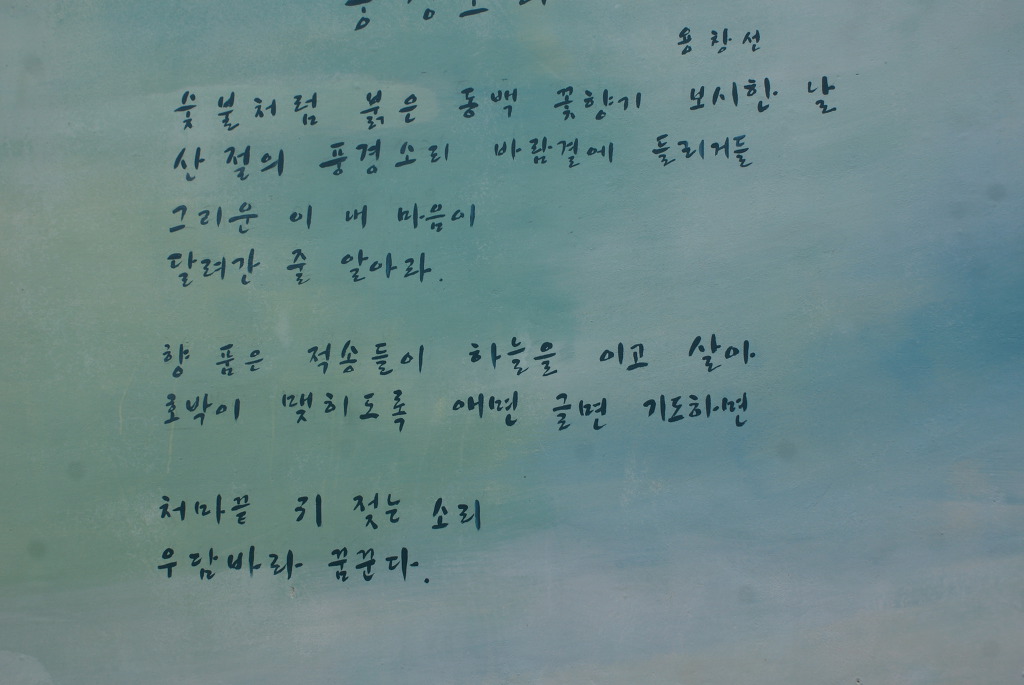 풍경소리
용창선
숯불처럼 붉은 동백 꽃향기 보시한 날
산 절의 풍경소리 바람결에 들리거들
그리운 이 내 마음이
달려간 줄 알아라.
향 품은 적송들이 하늘을 이고 살아
호박이 맺히도록 애면 글면 기도하면
처마끝 귀 젖는 소리
우담바라 꿈꾼다.